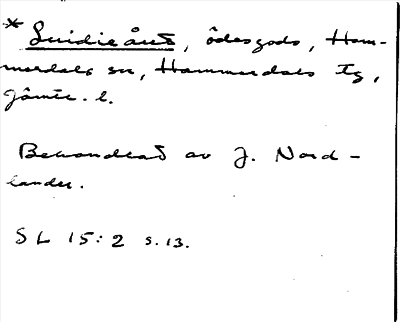 * Suidieånd, ödesgods, Ham-
merdals sn, Hammerdals tg,
Jämtl. l.
Behandlat av J. Nord-
lander.
SL 15:2 s. 13.